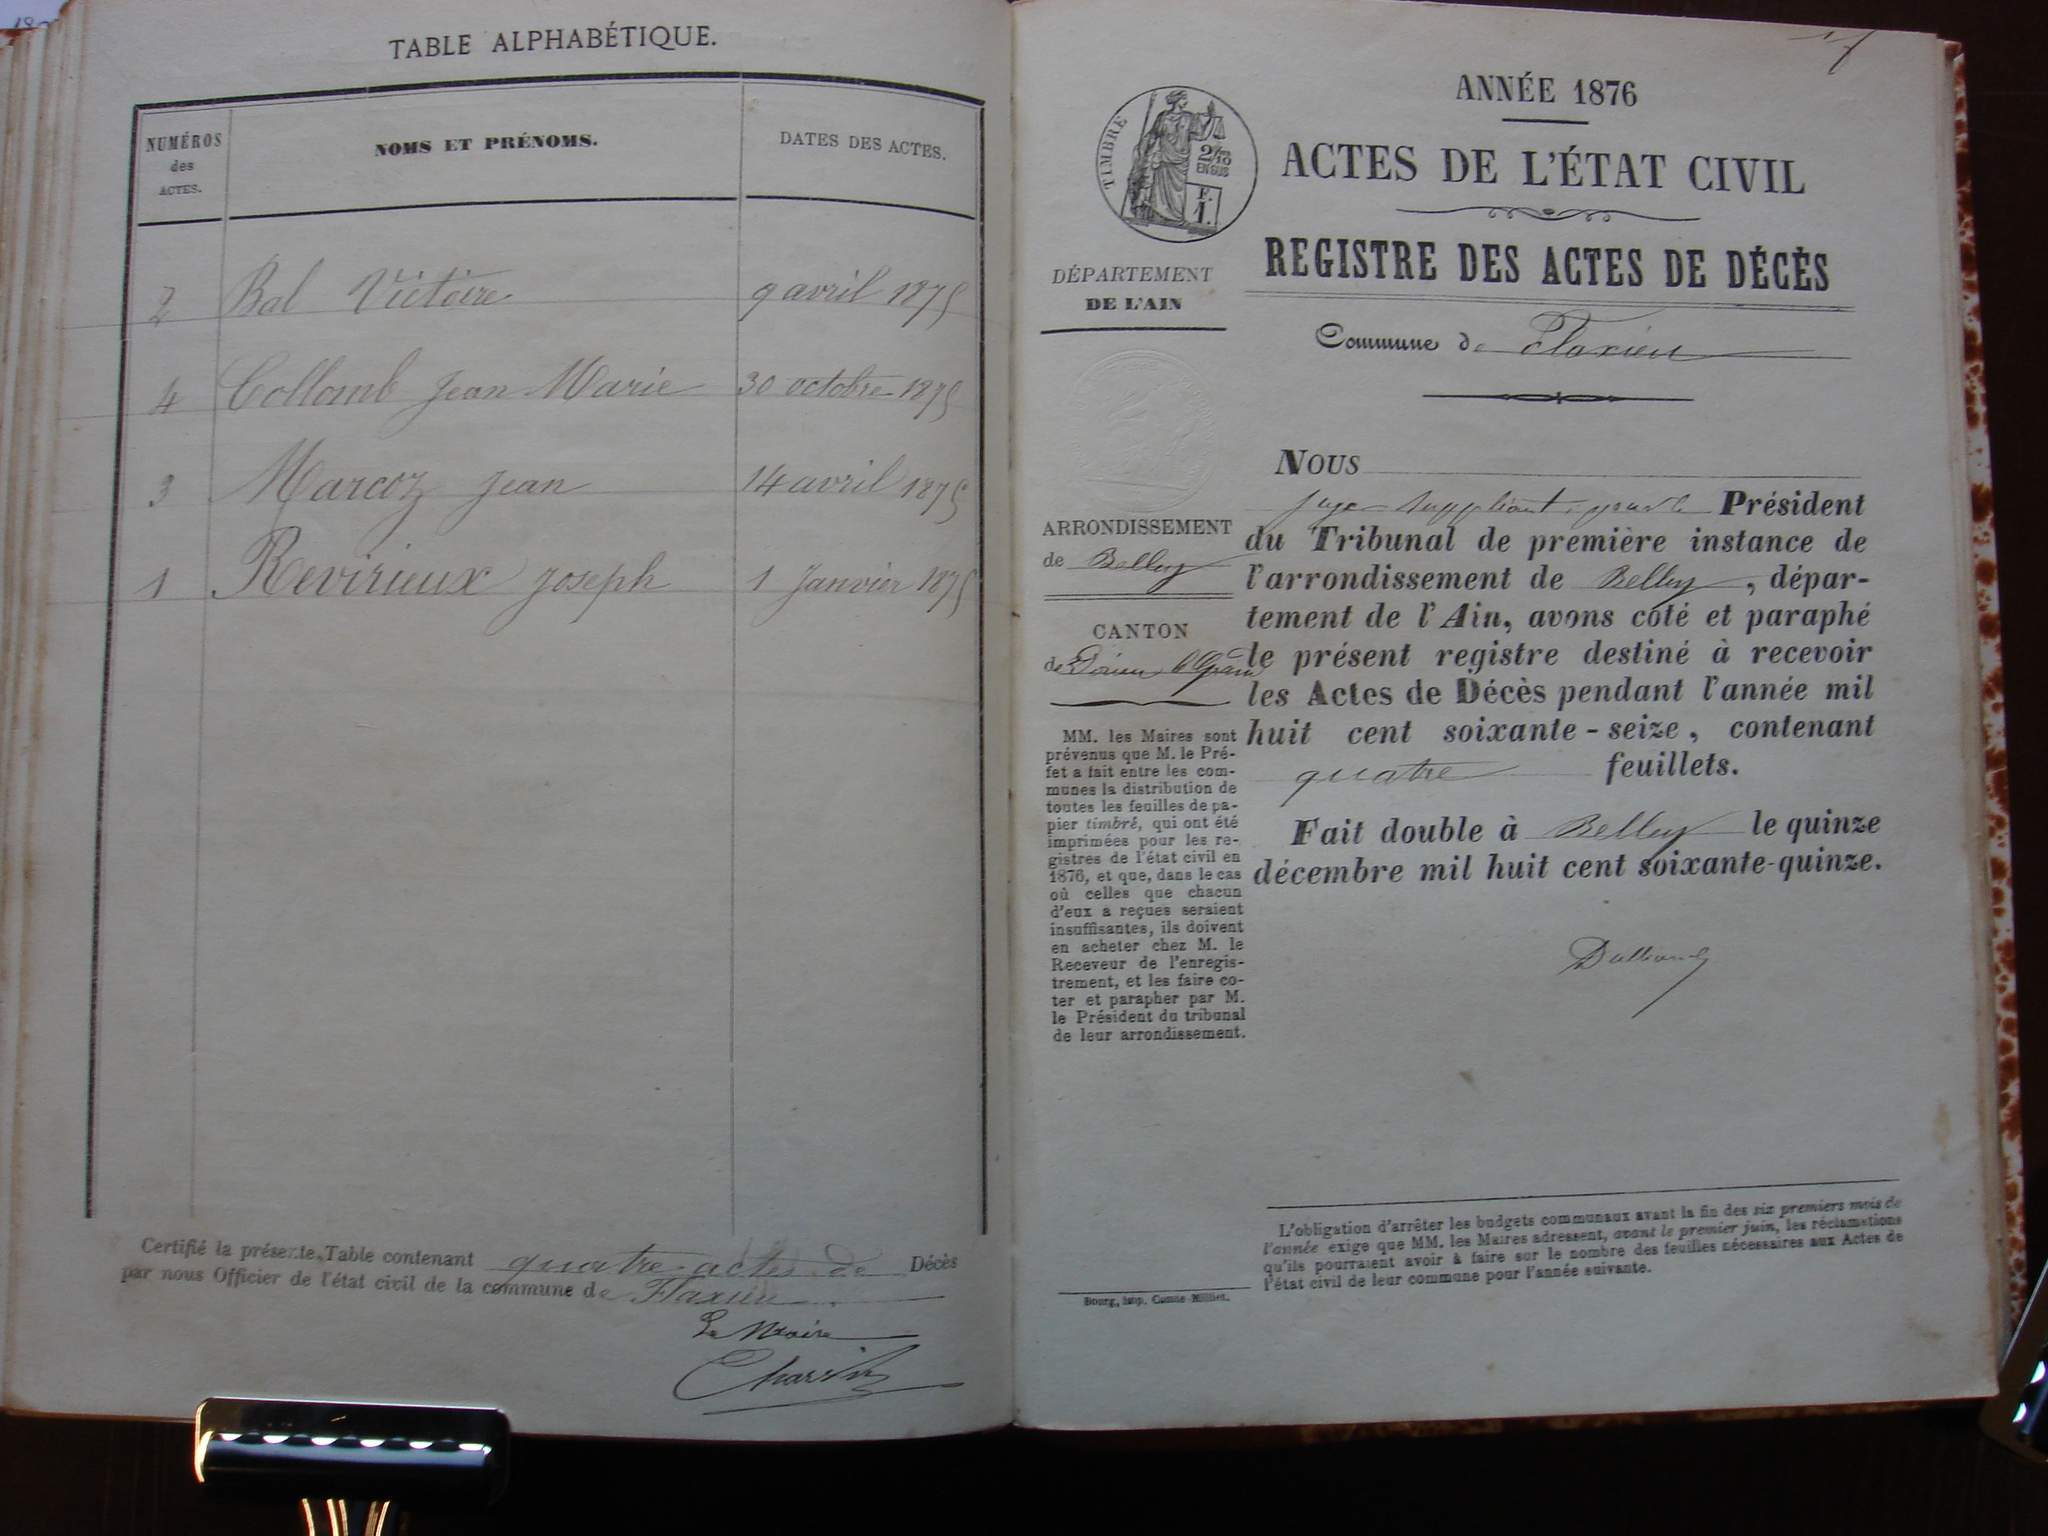 TABLE ALPHABÉTIQUE.
NUMÉROS
des
ACTES.
NOMS ET PRÉNOMS.
DATES DES ACTES.
2 Bal Victoire 9 avril 1875
4 Collomb Jean-Marie 30 octobre 1875
3 Marcoz Jean 14 avril 1875
1 Revirieux Joseph 1 Janvier 1875
Certifié la présente Table contenant quatre actes de Décès
par nous Officier de l'état civil de la commune de Flaxieu
Le Maire
Charvin
ANNÉE 1876
ACTES DE L'ÉTAT CIVIL
REGISTRE DES ACTES DE DÉCÈS
Commune de Flaxieu
TIMBRE
2/10
EN SUS
F.
1.
DÉPARTEMENT
DE L'AIN
ARRONDISSEMENT
de Belley
CANTON
de Virieu le Grand
MM. les Maires sont
prévenus que M. le Pré-
fet a fait entre les com-
munes la distribution de
toutes les feuilles de pa-
pier timbré, qui ont été
imprimées pour les re-
gistres de l'état civil en
1876, et que, dans le cas
où celles que chacun
d'eux a reçues seraient
insuffisantes, ils doivent
en acheter chez M. le
Receveur de l'enregis-
trement, et les faire co-
ter et parapher par M.
le Président du tribunal
de leur arrondissement.
NOUS
juge suppléant, pour le Président
du Tribunal de première instance de
l'arrondissement de Belley, dépar-
tement de l'Ain, avons coté et paraphé
le présent registre destiné à recevoir
les Actes de Décès pendant l'année mil
huit cent soixante-seize, contenant
quatre feuillets.
Fait double à Belley le quinze
décembre mil huit cent soixante-quinze.
L'obligation d'arrêter les budgets communaux avant la fin des six premiers mois de
l'année exige que MM. les Maires adressent, avant le premier juin, les réclamations
qu'ils pourraient avoir à faire sur le nombre des feuilles nécessaires aux Actes de
l'état civil de leur commune pour l'année suivante.
Bourg, imp. Comte-Milliet.